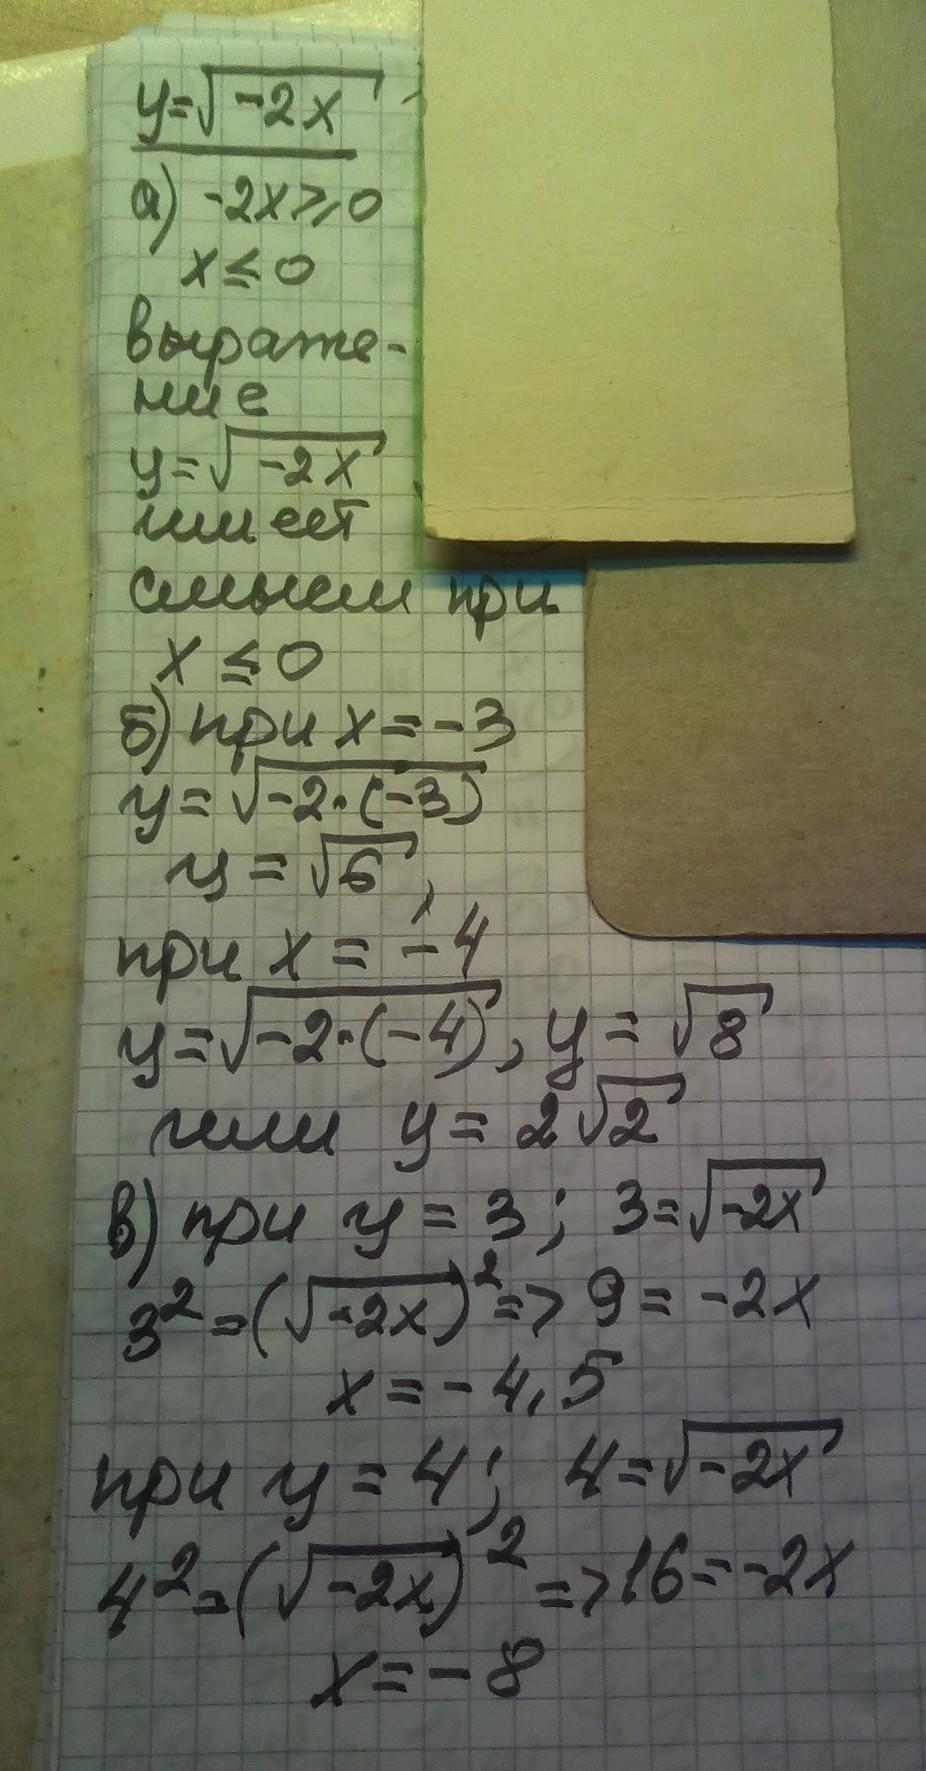 y=√-2x
а) -2x⩾0
x≤0
выраже-
ние
y=√-2x
имеет
смысл при
x≤0
б) при x=-3
y=√-2·(-3)
y=√6,
при x=-4
y=√-2·(-4), y=√8
или y=2√2
в) при y=3; 3=√-2x
3²=(√-2x)²=>9=-2x
x=-4,5
при y=4; 4=√-2x
4²=(√-2x)²=>16=-2x
x=-8